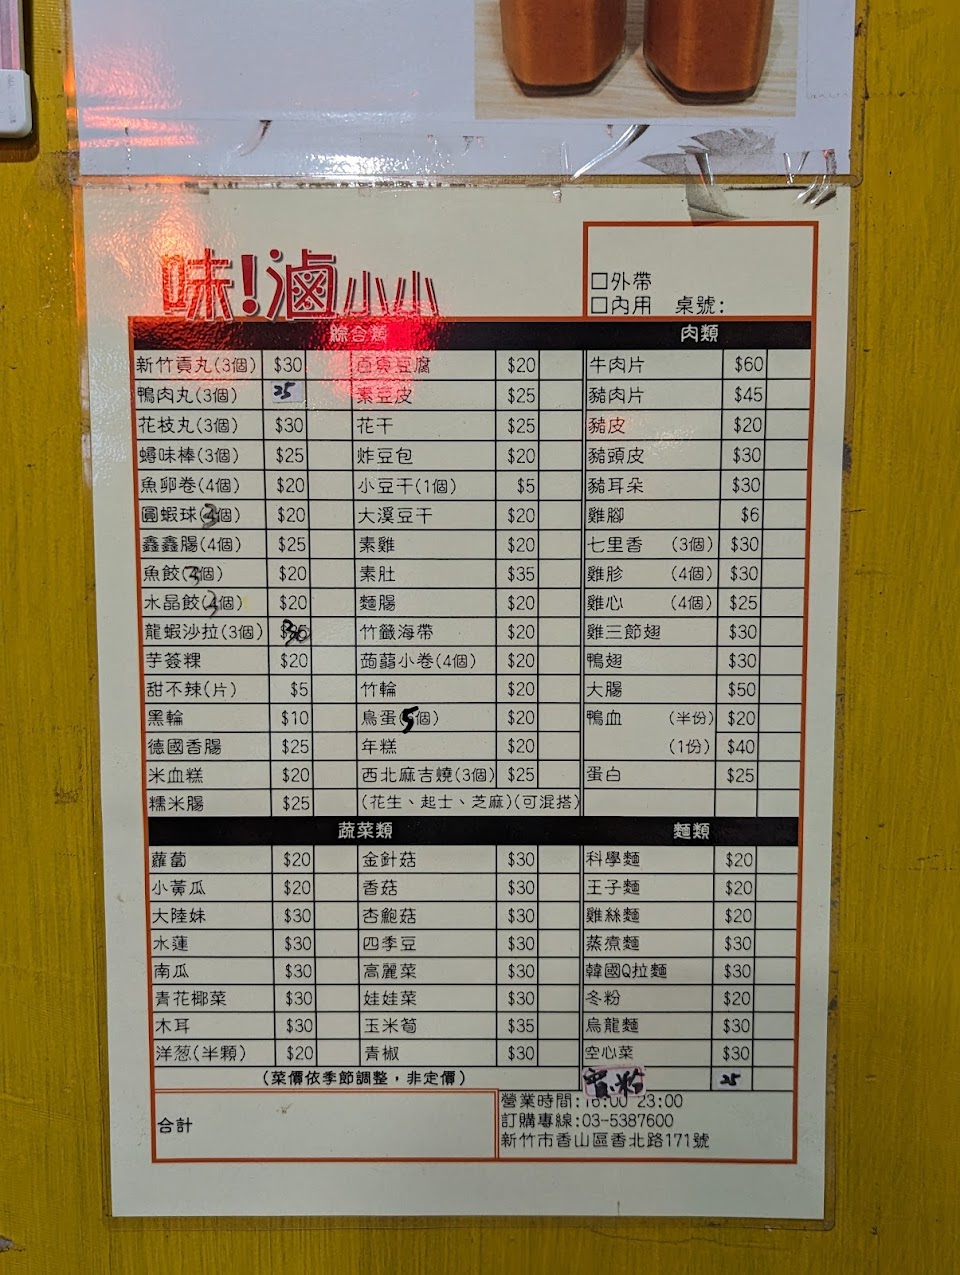 味!滷小小
□外帶
□內用 桌號:
綜合類 肉類
新竹貢丸(3個) $30 百頁豆腐 $20 牛肉片 $60
鴨肉丸(3個) 25 素豆皮 $25 豬肉片 $45
花枝丸(3個) $30 花干 $25 豬皮 $20
蟳味棒(3個) $25 炸豆包 $20 豬頭皮 $30
魚卵卷(4個) $20 小豆干(1個) $5 豬耳朵 $30
圓蝦球(3個) $20 大溪豆干 $20 雞腳 $6
鑫鑫腸(4個) $25 素雞 $20 七里香 (3個) $30
魚餃(3個) $20 素肚 $35 雞胗 (4個) $30
水晶餃(3個) $20 麵腸 $20 雞心 (4個) $25
龍蝦沙拉(3個) $30 竹籤海帶 $20 雞三節翅 $30
芋簽粿 $20 蒟蒻小卷(4個) $20 鴨翅 $30
甜不辣(片) $5 竹輪 $20 大腸 $50
黑輪 $10 鳥蛋(5個) $20 鴨血 (半份) $20
德國香腸 $25 年糕 $20 (1份) $40
米血糕 $20 西北麻吉燒(3個) $25 蛋白 $25
糯米腸 $25 (花生、起士、芝麻)(可混搭)
蔬菜類 麵類
蘿蔔 $20 金針菇 $30 科學麵 $20
小黃瓜 $20 香菇 $30 王子麵 $20
大陸妹 $30 杏鮑菇 $30 雞絲麵 $20
水蓮 $30 四季豆 $30 蒸煮麵 $30
南瓜 $30 高麗菜 $30 韓國Q拉麵 $30
青花椰菜 $30 娃娃菜 $30 冬粉 $20
木耳 $30 玉米筍 $35 烏龍麵 $30
洋葱(半顆) $20 青椒 $30 空心菜 $30
(菜價依季節調整，非定價) 25
合計
營業時間:16:00 23:00
訂購專線:03-5387600
新竹市香山區香北路171號